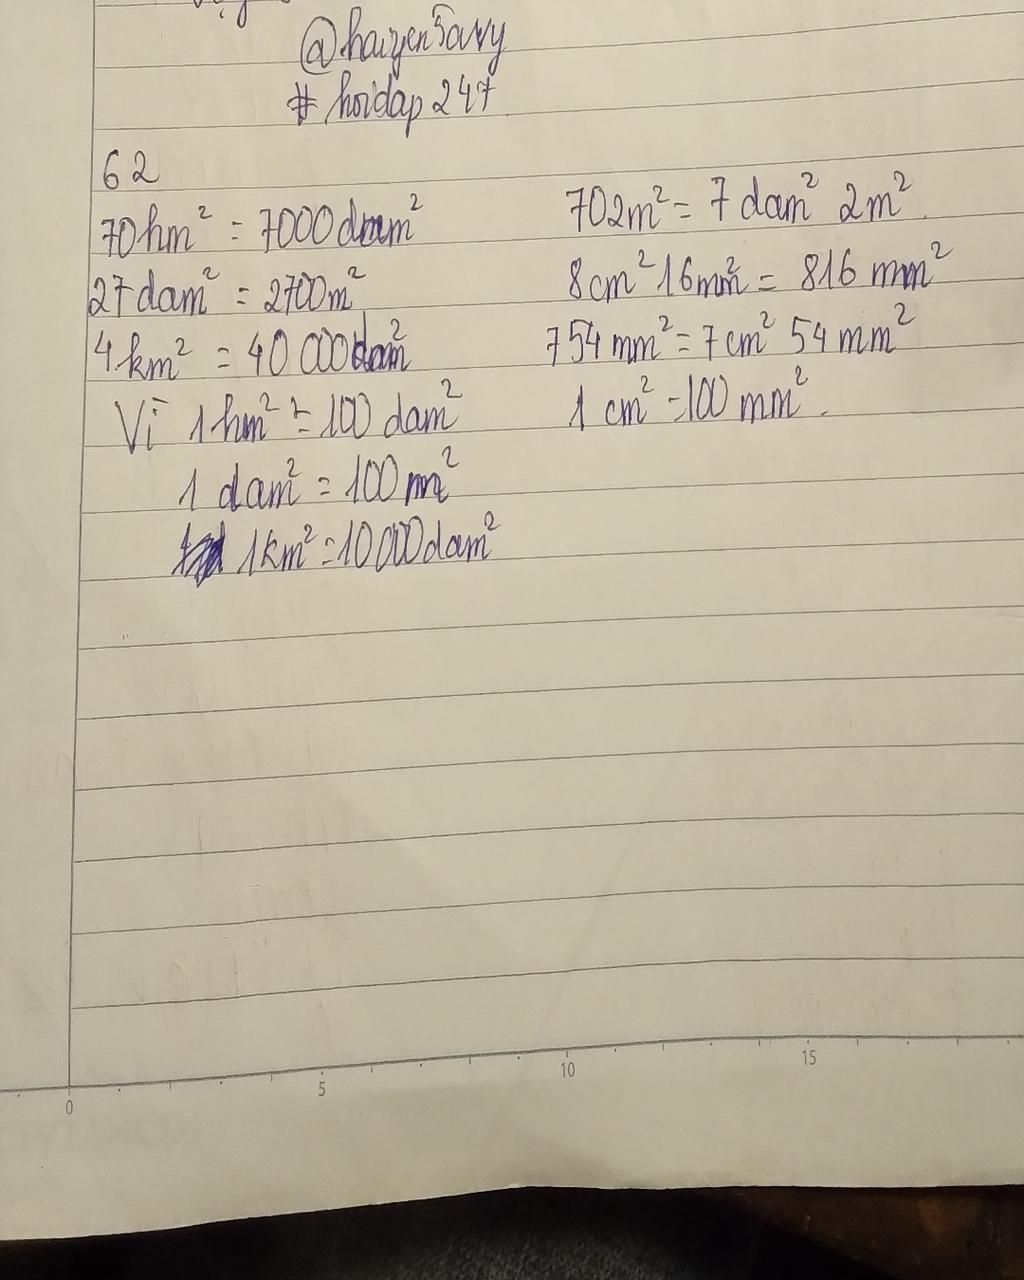 @haiyen5avvy
# hoidap247
62
70hm² = 7000dam²
27dam² = 2700m²
4km² = 40 000dam²
Vì 1hm² = 100 dam²
1 dam² = 100m²
1km² = 10 000dam²
702m² = 7 dam² 2m².
8cm² 16mm² = 816 mm²
754mm² = 7cm² 54mm²
1 cm² = 100 mm².
0 5 10 15